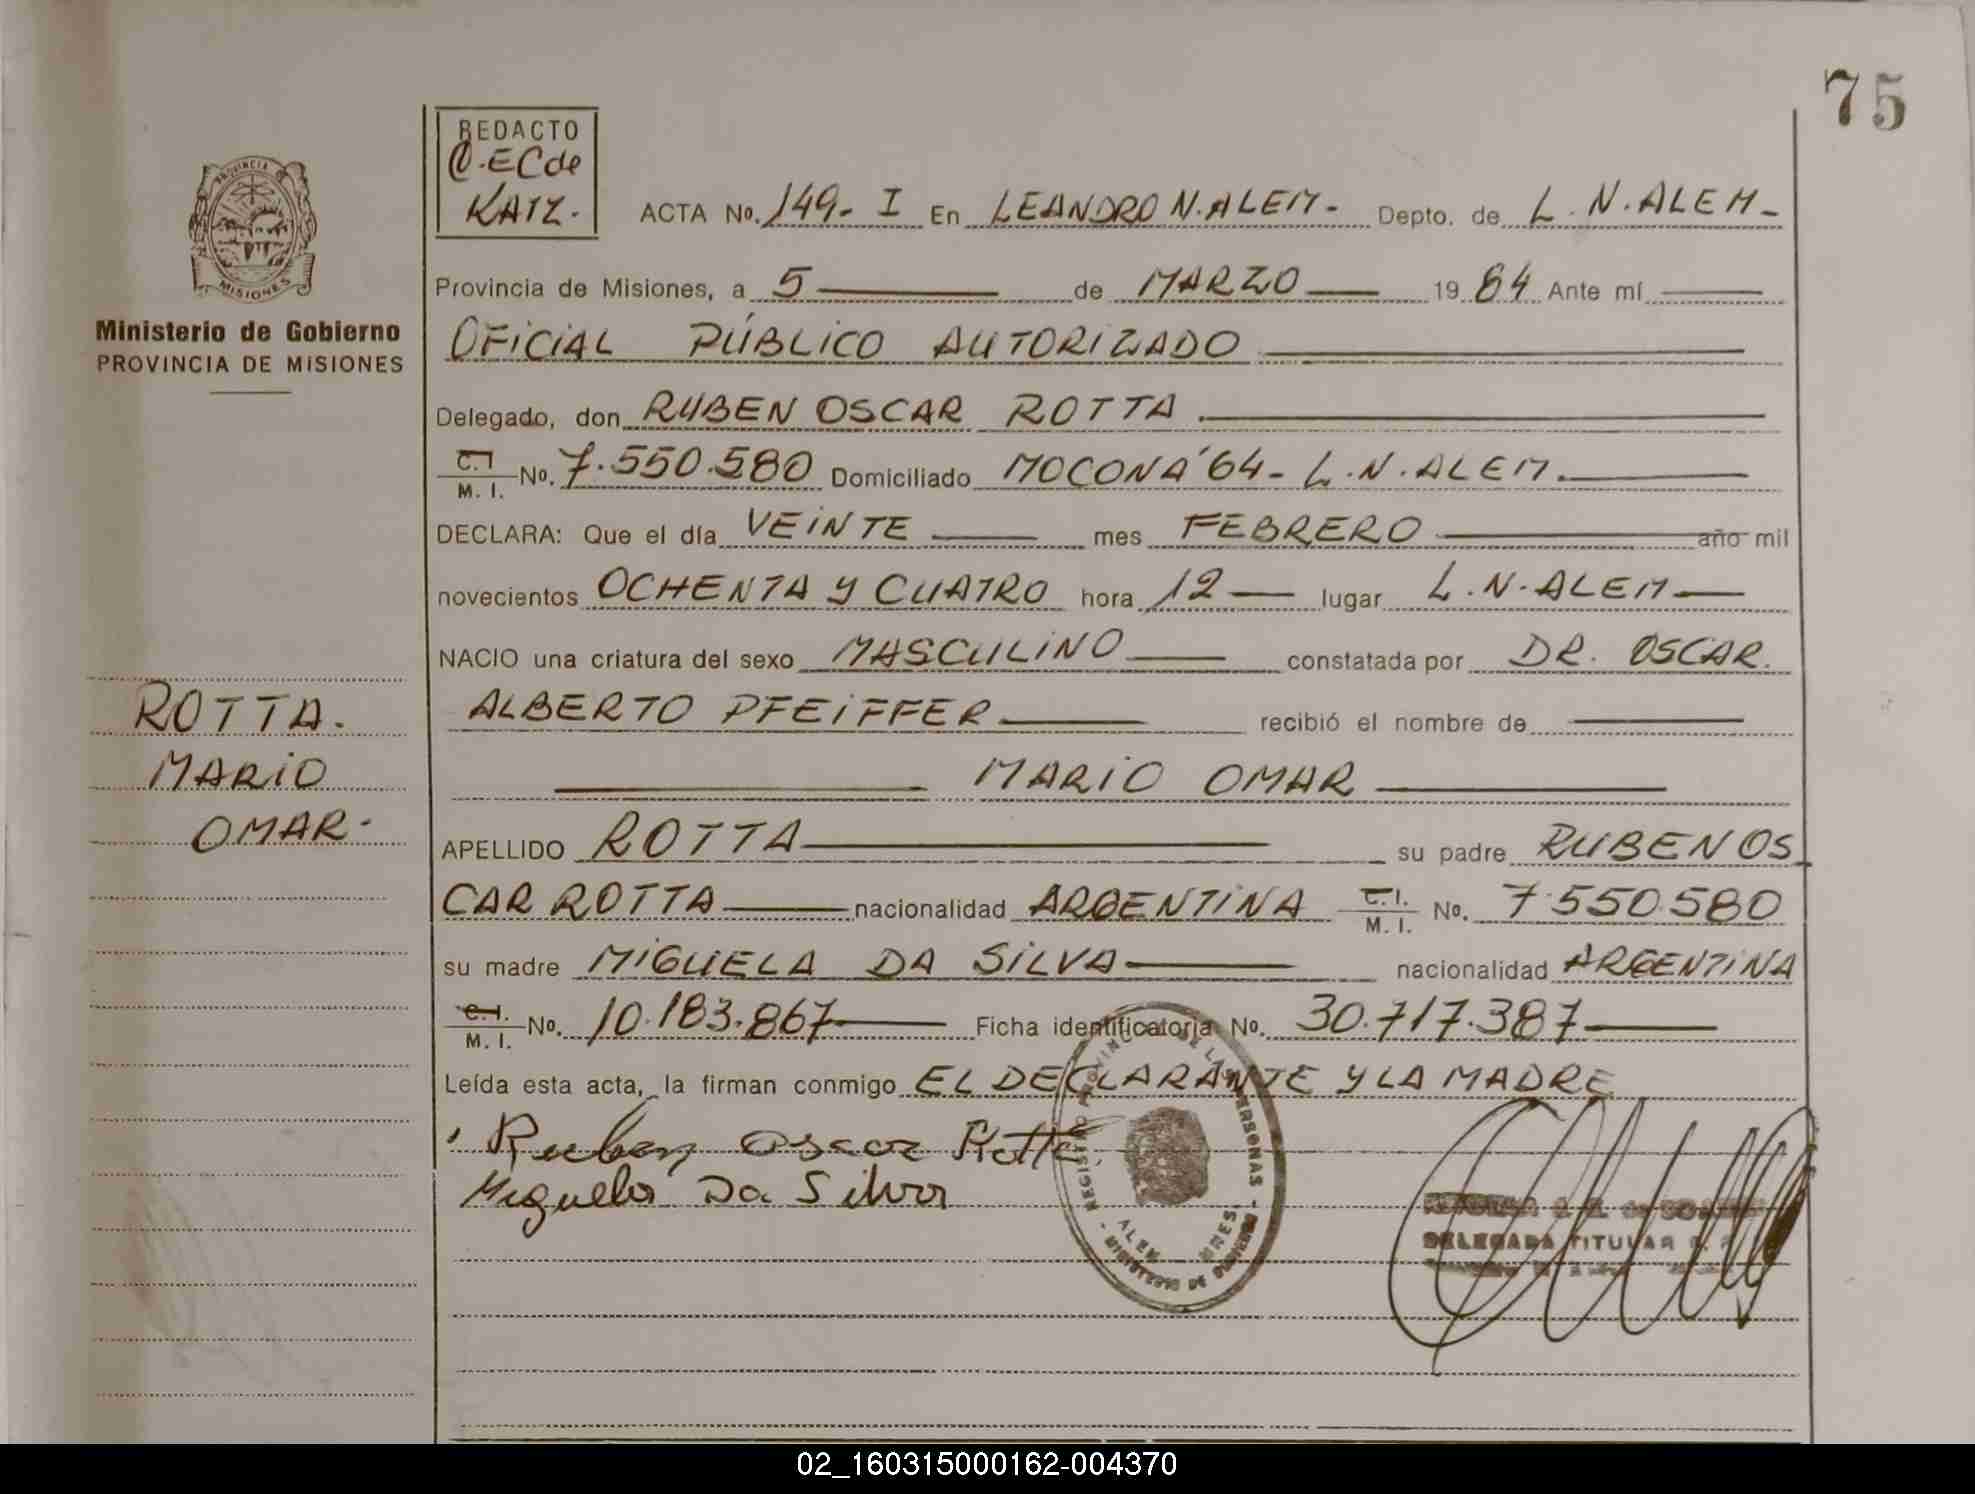 75
REDACTO
KATZ.
ACTA No. 149- I En LEANDRO N. ALEM- Depto. de L. N. ALEM-
PROVINCIA
MISIONES
Ministerio de Gobierno
PROVINCIA DE MISIONES
Provincia de Misiones, a 5 de MARZO 1984 Ante mí
OFICIAL PÚBLICO AUTORIZADO
Delegado, don RUBEN OSCAR ROTTA
C. I. M. I. No. 7.550.580 Domiciliado MOCONA' 64- L. N. ALEM.
DECLARA: Que el día VEINTE mes FEBRERO año mil
novecientos OCHENTA Y CUATRO hora 12 lugar L. N. ALEM
NACIO una criatura del sexo MASCULINO constatada por DR. OSCAR.
ALBERTO PFEIFFER recibió el nombre de
MARIO OMAR
ROTTA.
MARIO
OMAR-
APELLIDO ROTTA su padre RUBEN OS
CAR ROTTA nacionalidad ARGENTINA C. I. M. I. No. 7.550.580
su madre MIGUELA DA SILVA nacionalidad ARGENTINA
C. I. M. I. No. 10.183.867 Ficha identificatoria No. 30.717.387
Leída esta acta, la firman conmigo EL DECLARANTE Y LA MADRE
Ruben Oscar Rotta
Miguela Da Silva
REGISTRO PROVINCIAL DE LAS PERSONAS
ALEM MNES
MINISTERIO DE GOBIERNO
DELEGADA TITULAR
02_160315000162-004370